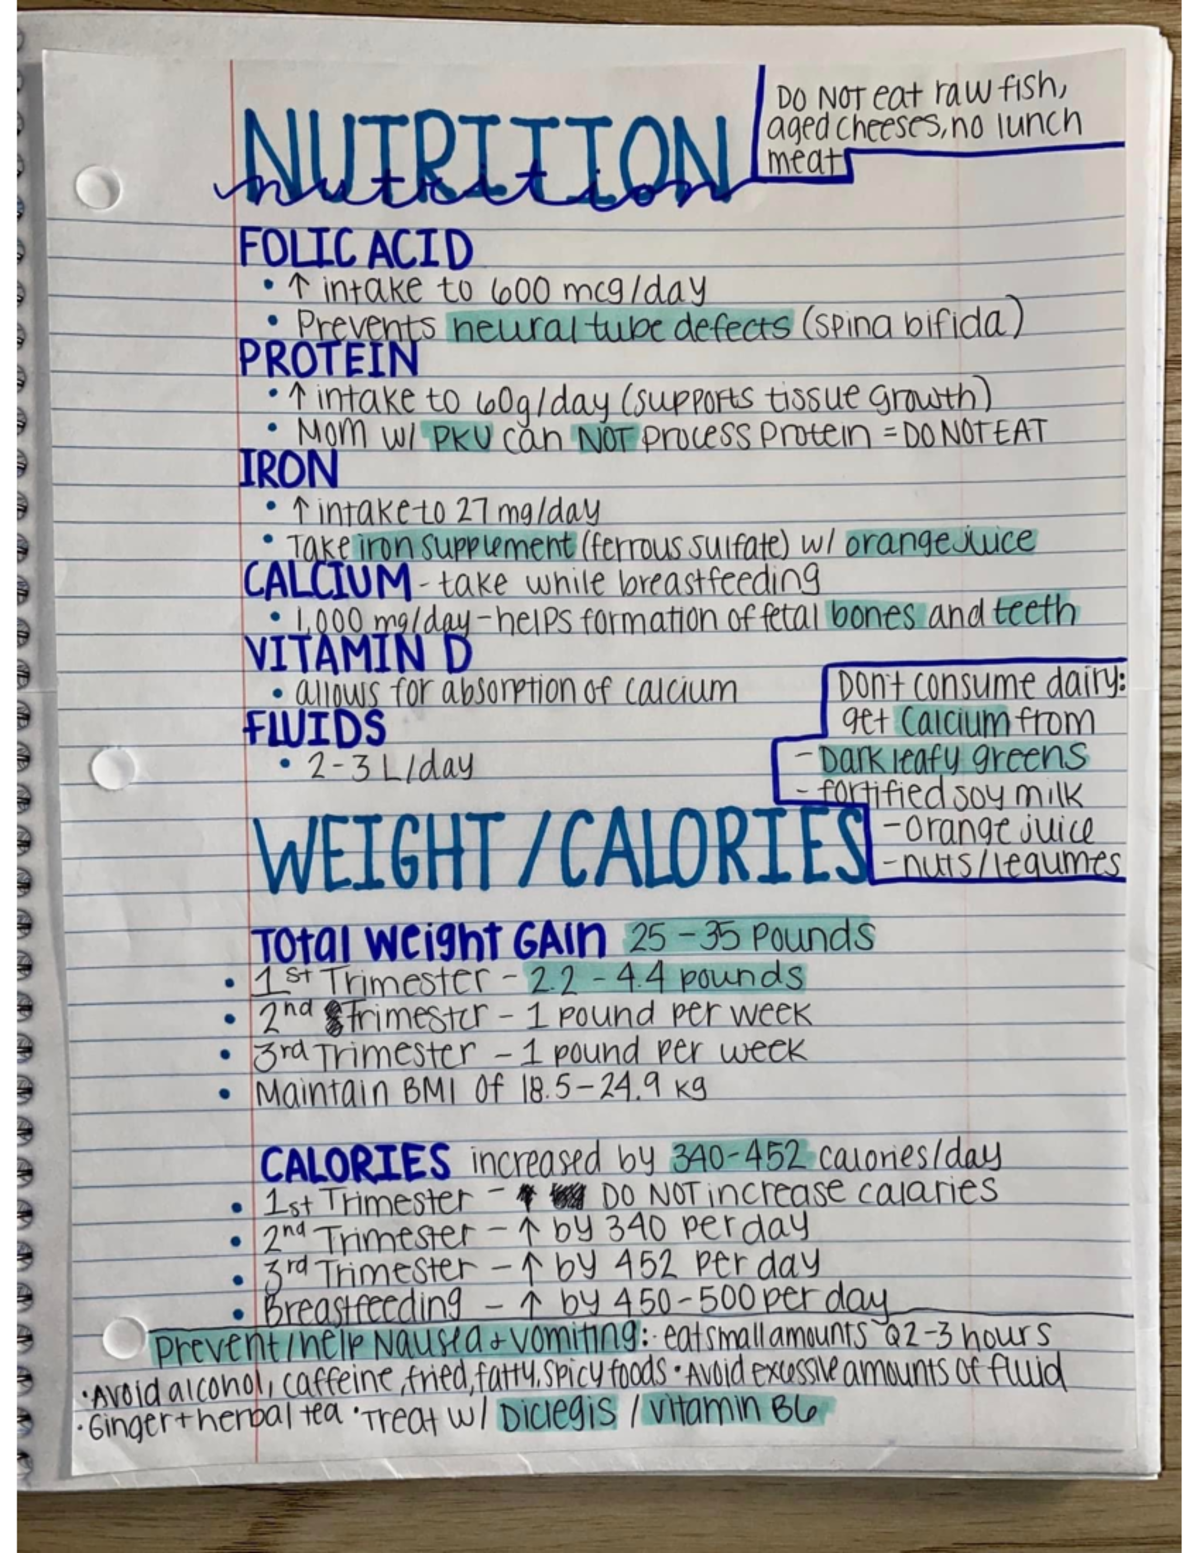 NUTRITION
nutrition
DO NOT eat raw fish,
aged cheeses, no lunch
meat
FOLIC ACID
• ↑ intake to 600 mcg/day
• Prevents neural tube defects (spina bifida)
PROTEIN
• ↑ intake to 60g/day (supports tissue growth)
• Mom w/ PKU can NOT process protein = DO NOT EAT
IRON
• ↑ intake to 27 mg/day
• Take iron supplement (ferrous sulfate) w/ orange juice
CALCIUM - take while breastfeeding
• 1,000 mg/day - helps formation of fetal bones and teeth
VITAMIN D
• allows for absorption of calcium
FLUIDS
• 2-3 L/day
Don't consume dairy:
get Calcium from
- Dark leafy greens
- fortified soy milk
- orange juice
- nuts/legumes
WEIGHT/CALORIES
Total Weight GAIn 25-35 Pounds
• 1st Trimester - 2.2-4.4 pounds
• 2nd Trimester - 1 pound per week
• 3rd Trimester - 1 pound per week
• Maintain BMI of 18.5-24.9 kg
CALORIES increased by 340-452 calories/day
• 1st Trimester - DO NOT increase calaries
• 2nd Trimester - ↑ by 340 per day
• 3rd Trimester - ↑ by 452 per day
• Breastfeeding - ↑ by 450-500 per day
Prevent/help Nausea + vomiting: · eat small amounts Q2-3 hours
· Avoid alcohol, caffeine, fried, fatty, spicy foods · Avoid excessive amounts of fluid
· Ginger + herbal tea · Treat w/ Diclegis / vitamin B6